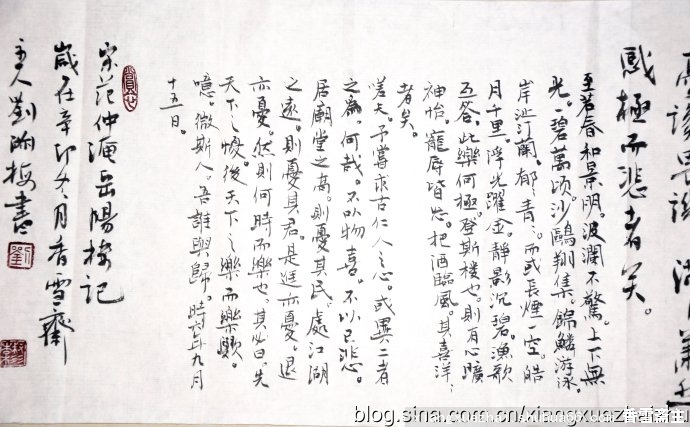 讒畏譏 滿目蕭
感極而悲者矣。
至若春和景明。波瀾不驚。上下天
光。一碧萬頃沙鷗翔集。錦鱗游泳。
岸芷汀蘭。郁:青:。而或長煙一空。皓
月千里。浮光躍金。靜影沉碧。漁歌
互答。此樂何極。登斯樓也。則有心曠
神怡。寵辱皆忘。把酒臨風。其喜洋:
者矣。
嗟夫。予嘗求古仁人之心。或異二者
之為何哉。不以物喜。不以己悲。
居廟堂之高。則憂其民。處江湖
之遠。則憂其君。是進亦憂。退
亦憂。然則何時而樂也。其必曰。先
天下之憂。後天下之樂而樂歟。
噫。微斯人。吾誰與歸。時六年九月
十五日。
宋范仲淹岳陽樓記
歲在辛卯冬月香雪齋
主人劉湘梅書
劉
blog.sina.com.cn/xiangxuezhai